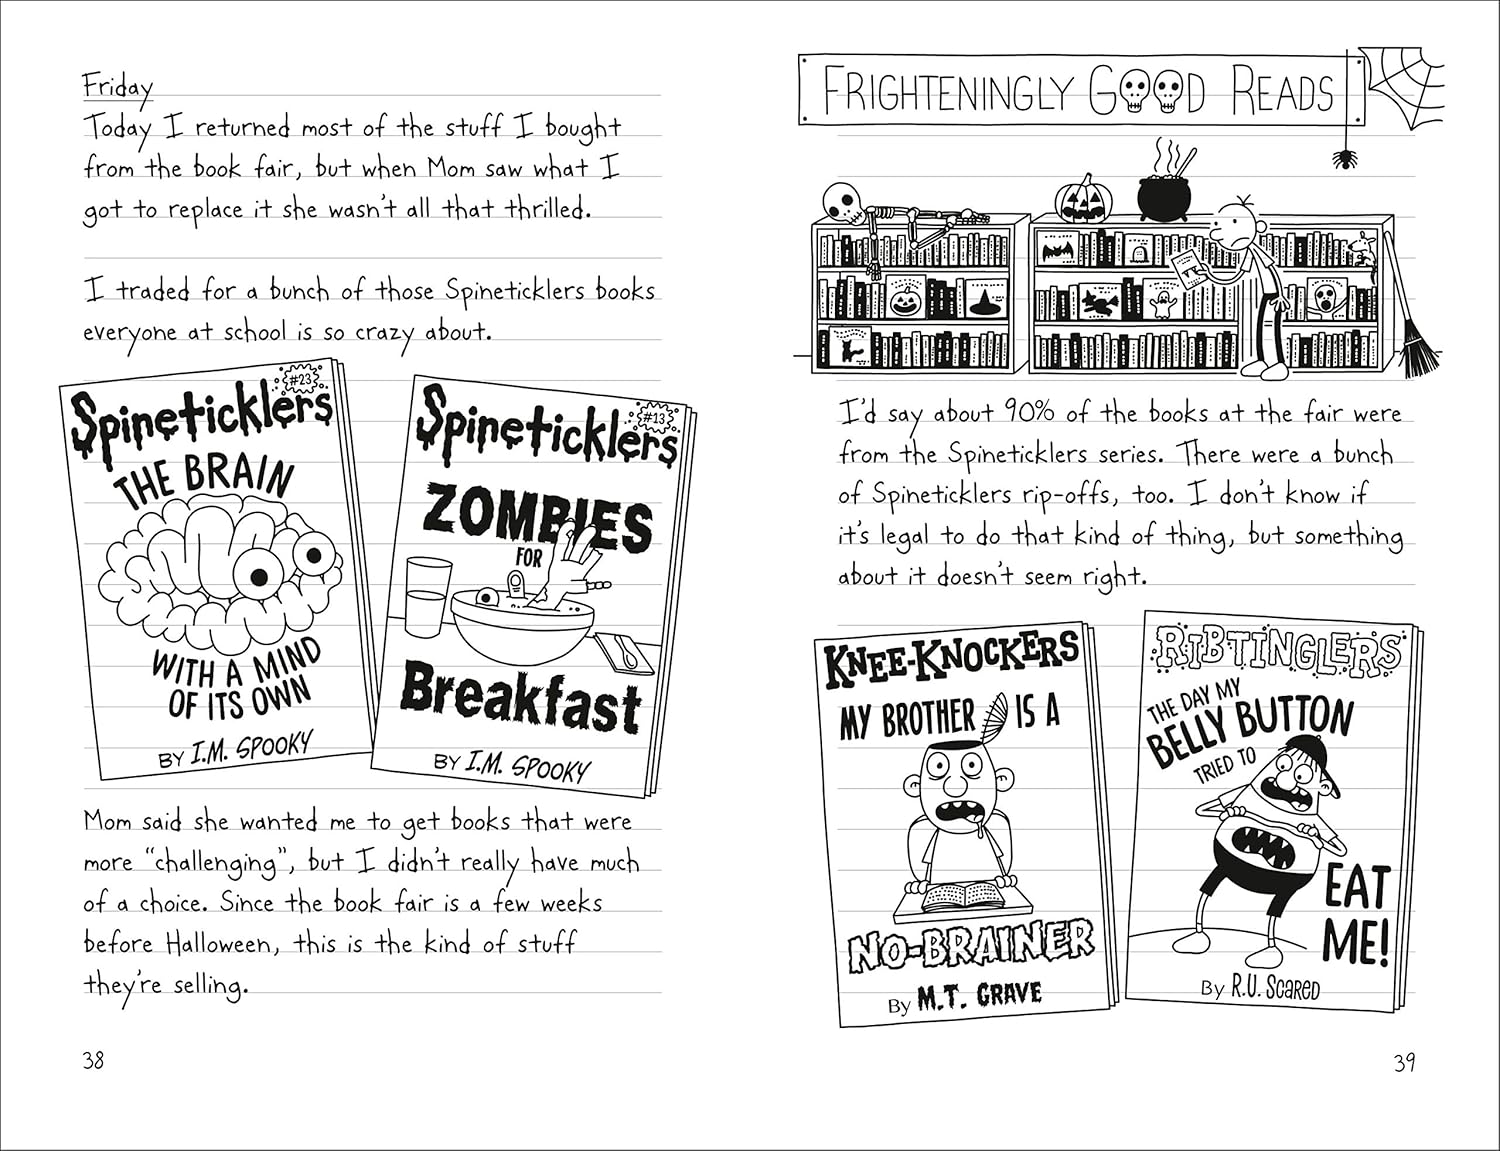 Friday
Today I returned most of the stuff I bought
from the book fair, but when Mom saw what I
got to replace it she wasn't all that thrilled.
I traded for a bunch of those Spineticklers books
everyone at school is so crazy about.
#23
Spineticklers
THE BRAIN
WITH A MIND
OF ITS OWN
BY I.M. SPOOKY
#13
Spineticklers
ZOMBIES
FOR
Breakfast
BY I.M. SPOOKY
Mom said she wanted me to get books that were
more "challenging", but I didn't really have much
of a choice. Since the book fair is a few weeks
before Halloween, this is the kind of stuff
they're selling.
38
FRIGHTENINGLY GOOD READS
I'd say about 90% of the books at the fair were
from the Spineticklers series. There were a bunch
of Spineticklers rip-offs, too. I don't know if
it's legal to do that kind of thing, but something
about it doesn't seem right.
KNEE-KNOCKERS
MY BROTHER IS A
NO-BRAINER
By M.T. GRAVE
RIBTINGLERS
THE DAY MY
BELLY BUTTON
TRIED TO
EAT
ME!
By R.U. SCARED
39